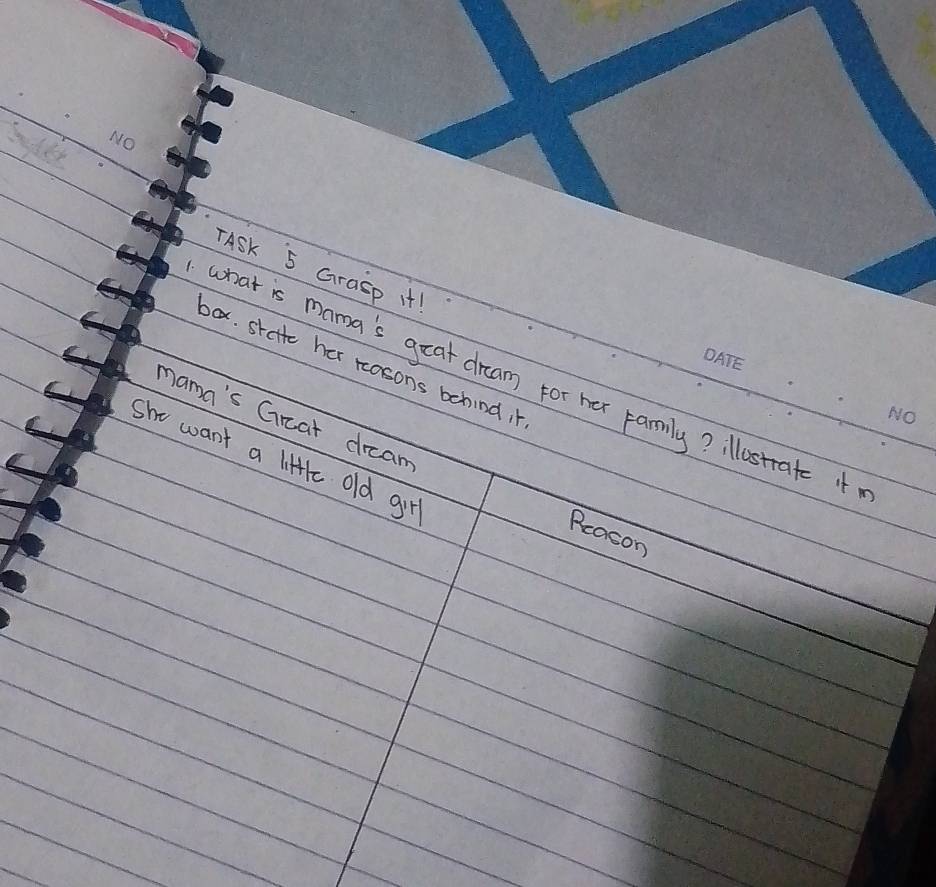 NO
TASK 5 Grasp it!
DATE
NO
1. What is mama's great dream for her family? illustrate it in
box. state her reasons behind it.
Mama's Great dream
Reason
She want a little old girl